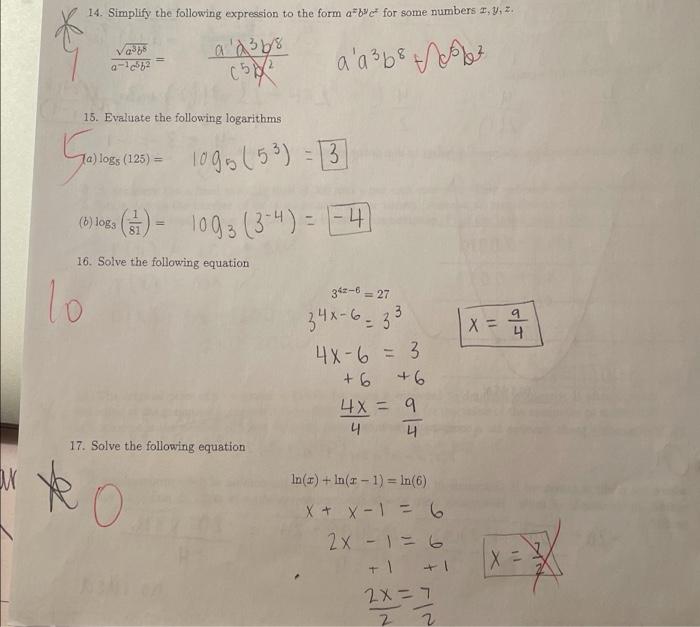 14. Simplify the following expression to the form a^x b^y c^z for some numbers x, y, z.
√(a³b⁸) / (a⁻¹c⁵b²) = a¹a³b⁸ / (c⁵b²) a¹a³b⁸
15. Evaluate the following logarithms
5
(a) log₅ (125) = log₅ (5³) = 3
(b) log₃ (1/81) = log₃ (3⁻⁴) = -4
16. Solve the following equation
10
3^(4x−6) = 27
3^(4x-6) = 3³ x = 9/4
4x-6 = 3
+6 +6
4x/4 = 9/4
17. Solve the following equation
0
ln(x) + ln(x − 1) = ln(6)
x + x-1 = 6
2x - 1 = 6 x = 7/2
+1 +1
2x/2 = 7/2